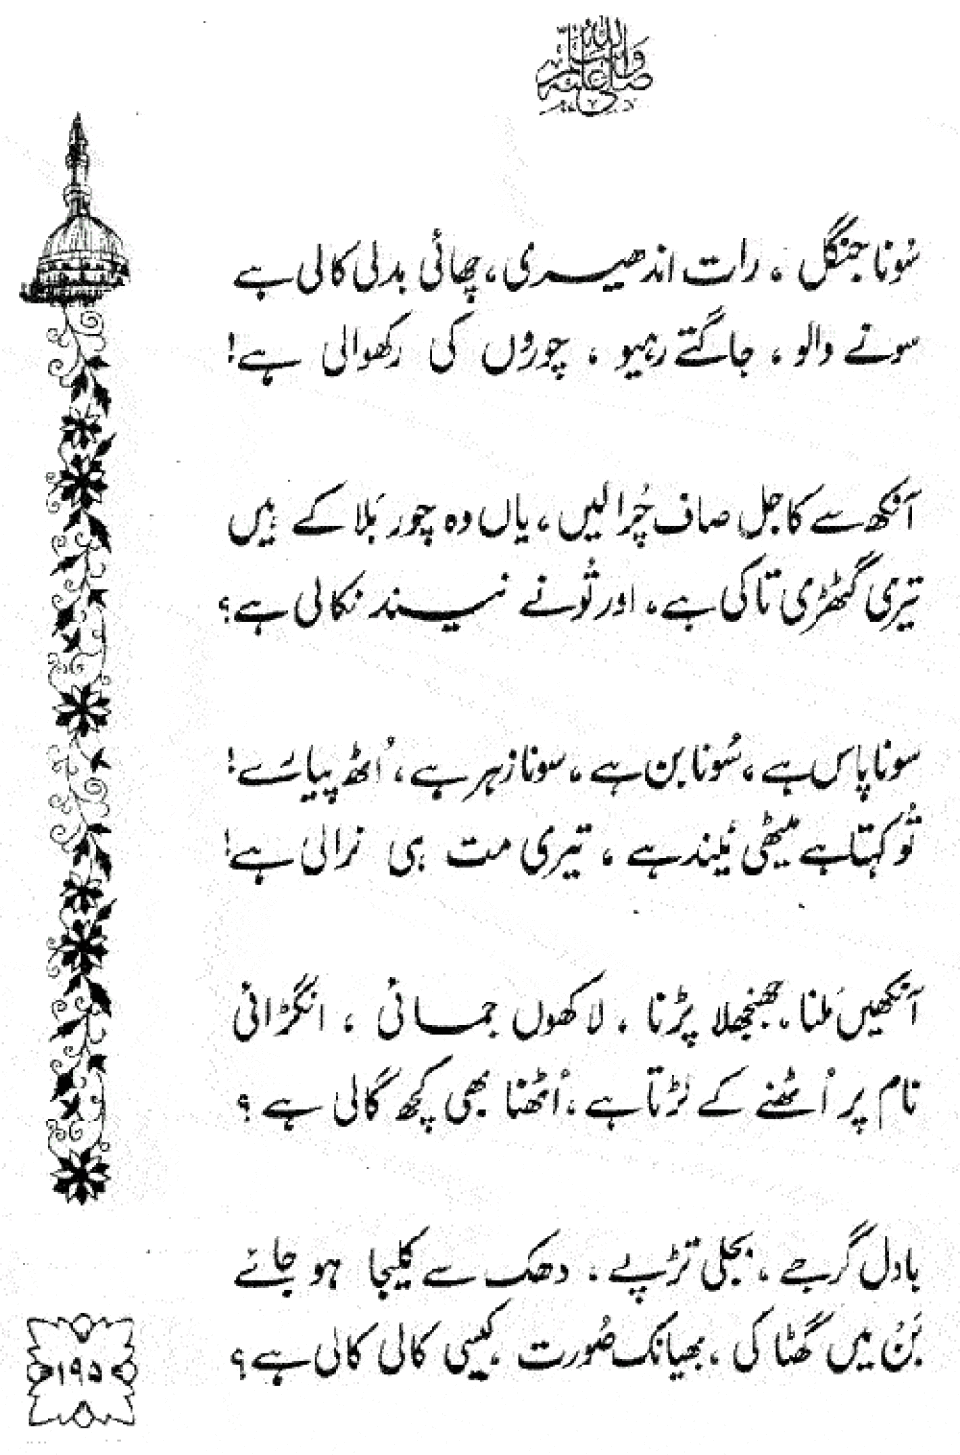 صلی اللہ علیہ وسلم
سُونا جنگل ، رات اندھیری ، چھائی بدلی کالی ہے
سونے والو ، جاگتے رہیو ، چوروں کی رکھوالی ہے!
آنکھ سے کاجل صاف چُرا لیں ، یاں وہ چور بَلا کے ہیں
تیری گٹھڑی تاکی ہے ، اور تُو نے نیند نکالی ہے؟
سونا پاس ہے ، سُونا بن ہے ، سونا زہر ہے ، اُٹھ پیارے!
تُو کہتا ہے میٹھی نیند ہے ، تیری مت ہی نرالی ہے!
آنکھیں مَلنا ، جھنجھلا پڑنا ، لاکھوں جمائی ، انگڑائی
نام پر اُٹھنے کے لڑتا ہے ، اُٹھنا بھی کچھ گالی ہے ؟
بادل گرجے ، بجلی تڑپے ، دھک سے کلیجا ہو جائے
بَن میں گھٹا کی ، بھیانک صُورت ، کیسی کالی کالی ہے؟
۱۹۵